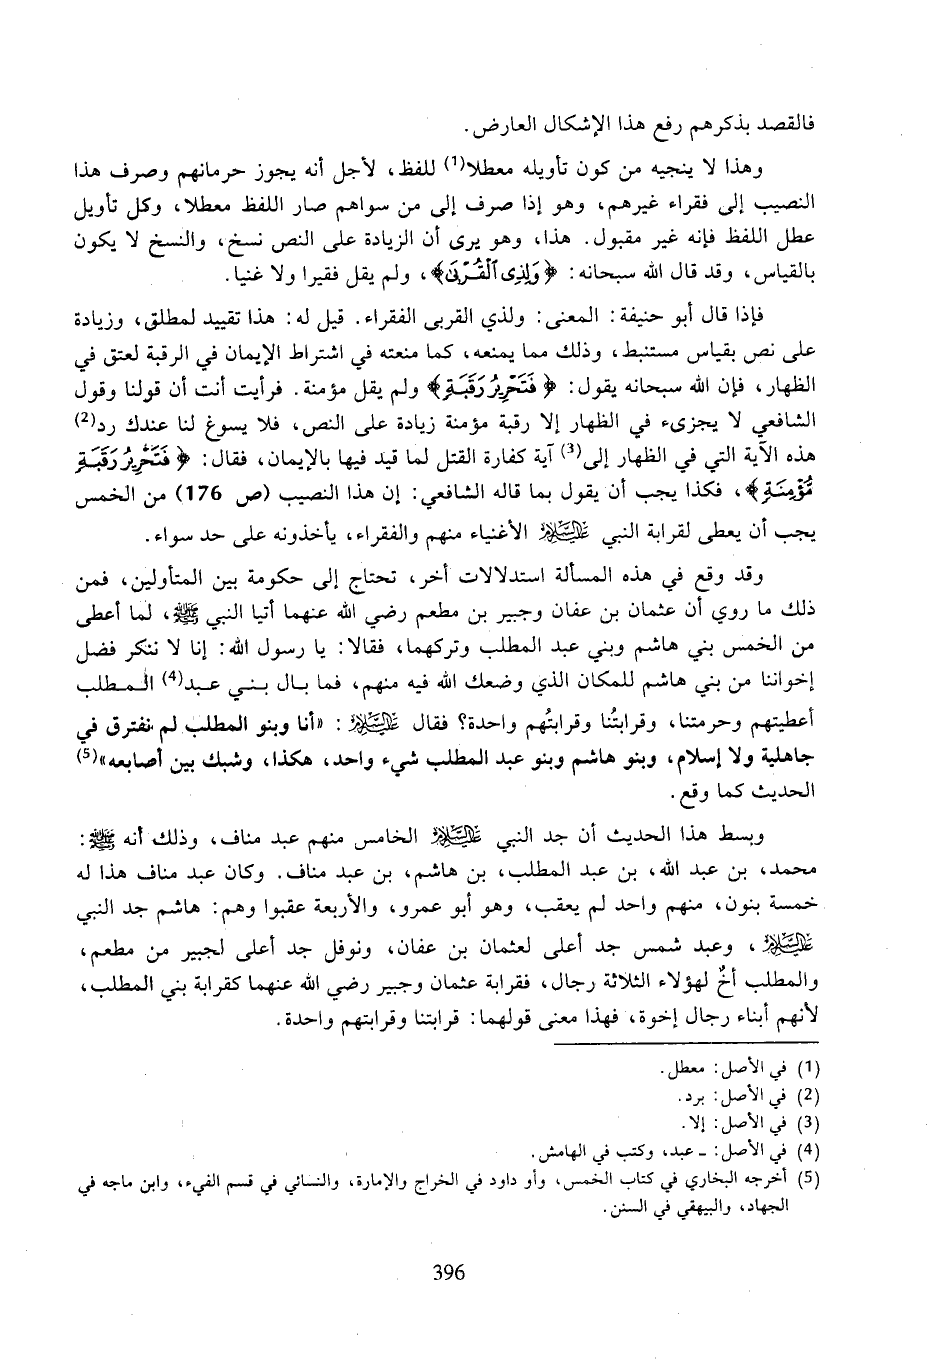 فالقصد بذكرهم رفع هذا الإشكال العارض.
وهذا لا ينجيه من كون تأويله معطلا(1) للفظ، لأجل أنه يجوز حرمانهم وصرف هذا
النصيب إلى فقراء غيرهم، وهو إذا صرف إلى من سواهم صار اللفظ معطلا، وكل تأويل
عطل اللفظ فإنه غير مقبول. هذا، وهو يرى أن الزيادة على النص نسخ، والنسخ لا يكون
بالقياس، وقد قال الله سبحانه: ﴿وَلِذِى ٱلْقُرْبَىٰ﴾، ولم يقل فقيرا ولا غنيا.
فإذا قال أبو حنيفة: المعنى: ولذي القربى الفقراء. قيل له: هذا تقييد لمطلق، وزيادة
على نص بقياس مستنبط، وذلك مما يمنعه، كما منعته في اشتراط الإيمان في الرقبة لعتق في
الظهار، فإن الله سبحانه يقول: ﴿فَتَحْرِيرُ رَقَبَةٍ﴾ ولم يقل مؤمنة. فرأيت أنت أن قولنا وقول
الشافعي لا يجزىء في الظهار إلا رقبة مؤمنة زيادة على النص، فلا يسوغ لنا عندك رد(2)
هذه الآية التي في الظهار إلى(3) آية كفارة القتل لما قيد فيها بالإيمان، فقال: ﴿فَتَحْرِيرُ رَقَبَةٍ
مُّؤْمِنَةٍ﴾، فكذا يجب أن يقول بما قاله الشافعي: إن هذا النصيب (ص 176) من الخمس
يجب أن يعطى لقرابة النبي عليه السلام الأغنياء منهم والفقراء، يأخذونه على حد سواء.
وقد وقع في هذه المسألة استدلالات أخر، تحتاج إلى حكومة بين المتأولين، فمن
ذلك ما روي أن عثمان بن عفان وجبير بن مطعم رضي الله عنهما أتيا النبي ﷺ، لما أعطى
من الخمس بني هاشم وبني عبد المطلب وتركهما، فقالا: يا رسول الله: إنا لا ننكر فضل
إخواننا من بني هاشم للمكان الذي وضعك الله فيه منهم، فما بال بني عبد(4) المطلب
أعطيتهم وحرمتنا، وقرابتُنا وقرابتُهم واحدة؟ فقال عليه السلام: «أنا وبنو المطلب لم نفترق في
جاهلية ولا إسلام، وبنو هاشم وبنو عبد المطلب شيء واحد، هكذا، وشبك بين أصابعه»(5)
الحديث كما وقع.
وبسط هذا الحديث أن جد النبي عليه السلام الخامس منهم عبد مناف، وذلك أنه ﷺ:
محمد، بن عبد الله، بن عبد المطلب، بن هاشم، بن عبد مناف. وكان عبد مناف هذا له
خمسة بنون، منهم واحد لم يعقب، وهو أبو عمرو، والأربعة عقبوا وهم: هاشم جد النبي
عليه السلام، وعبد شمس جد أعلى لعثمان بن عفان، ونوفل جد أعلى لجبير من مطعم،
والمطلب أخٌ لهؤلاء الثلاثة رجال، فقرابة عثمان وجبير رضي الله عنهما كقرابة بني المطلب،
لأنهم أبناء رجال إخوة، فهذا معنى قولهما: قرابتنا وقرابتهم واحدة.
(1) في الأصل: معطل.
(2) في الأصل: برد.
(3) في الأصل: إلا.
(4) في الأصل: ـ عبد، وكتب في الهامش.
(5) أخرجه البخاري في كتاب الخمس، وأو داود في الخراج والإمارة، والنسائي في قسم الفيء، وابن ماجه في
الجهاد، والبيهقي في السنن.
396